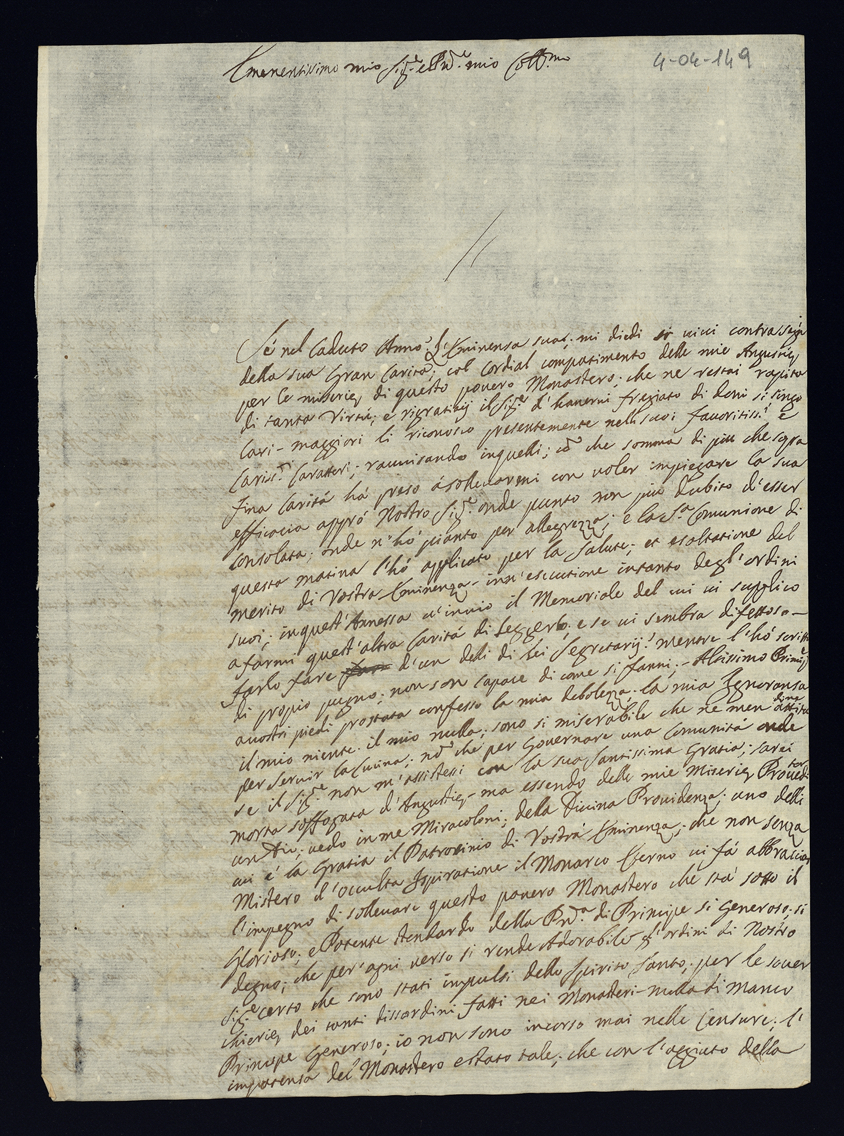 Emenentissimo mio Sig.re e Pad.e mio Coll.mo
4-04-149
Se nel Caduto Anno l'Eminensa sua mi diedi vivi contrasegn
della sua Gran Carità, col Cordial compatimento delle mie Angustie,
per le miserie, di questo povero Monastero; che ne restai rapita
di tanta Virtù; e rigratiai il Sig.re d'havervi fregiato di doni si singo
lari - maggiori li riconosco presentemente nelli suoi favoritiss.i e
Cariss.i Caratteri; ravvisando in quelli; che somma di più che sopra
fina Carità hà preso à sollevarmi con voler impiegare la sua
efficacia appró Nostro Sig.re onde punto non più dubito d'esser
Consolata; onde n'hò pianto per allegrezza; e la S.a Comunione di
questa matina l'hò applicato per la Salute; et esaltatione del
merito di Vostra Eminenza - in n'esecutione intanto degl'ordini
suoi; in quest'Annessa n'invio il Memoriale del cui vi supplico
a farmi quest'altra Carità di Leggerlo; e se vi sembra difettoso -
farlo fare d'un delli di Lei Segretarij: mentre l'hò scritto
di proprio pugno; non son capace di come si fanni; - Altissimo Prencipe
a vostri piedi prostata confesso la mia debolezza - la mia Ignoransa
il mio niente il mio nulla; sono si miserabile che ne men
per servir la Cucina; che per Governare una Comunità onde
se il Sig.re non m'assistessi con la sua Santissima Gratia; sarei
morta soffogata d'Angustie - ma essendo delle mie Miserie, Proved
un Dio; vedo in me Miracoloni; della Divina Providenza; uno delli
cui è la Gratia il Patrocinio di Vostra Eminenza; che non senza
Mistero d'occulta Ispiratione il Monarco Eterno vi fà abbraciar
l'impegno di sollevare questo povero Monastero che stà sotto il
Glorioso; e Potente stendardo della di Principe si Generoso; si
degno; che per ogni verso si rende Adorabile l'ordini di Nostro
Sig.re certo che sono stati impulsi dello Spirito Santo; per le sover
chierie, dei tanti dissordini fatti nei Monasteri - nulla di manco
Principe Generoso; io non sono incorso mai nelle Censure; l'
impotensa del Monastero e stato tale; che con l'aggiuto della